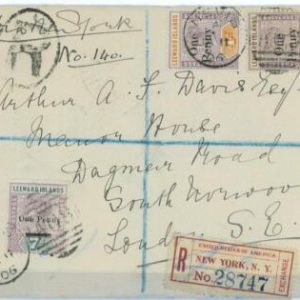 New York
No. 140.
R
LEEWARD ISLANDS
One Penny
LEEWARD ISLANDS
One Penny
Arthur A. F. Davis Esqre
Manor House
Dagmar Road
South Norwood
London S. E.
LEEWARD ISLANDS
One Penny
R
UNITED STATES OF AMERICA
NEW YORK, N. Y.
No. 28747
EXCHANGE